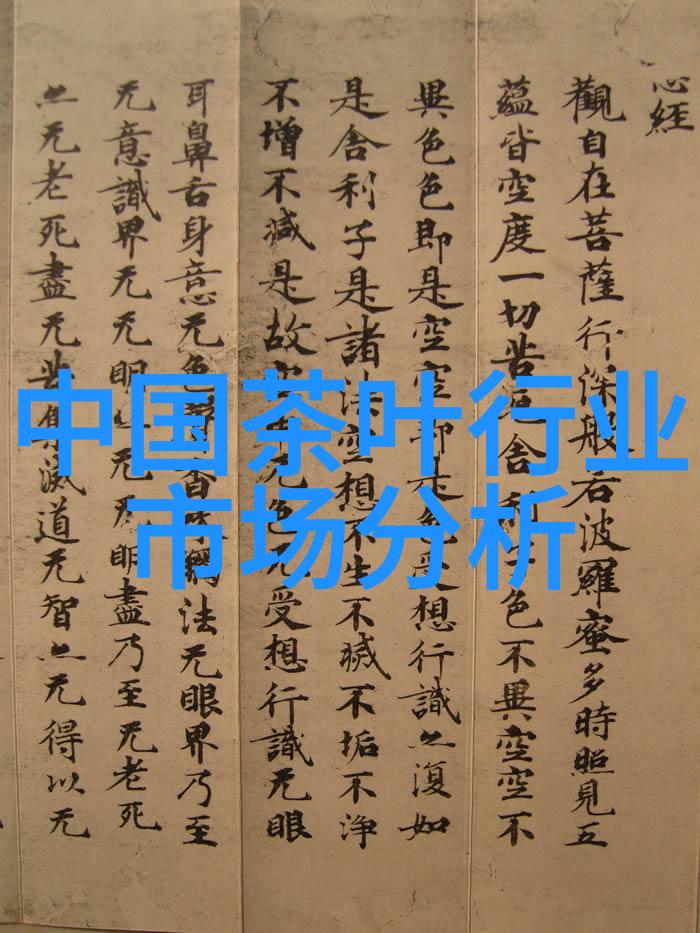 心経
觀自在菩薩行深般若波羅蜜多時照見五
蘊皆空度一切苦厄舍利子色不異空空不
異色色即是空空即是色受想行識亦復如
是舍利子是諸法空想不生不滅不垢不淨
不增不减是故空中无色无受想行識无眼
耳鼻舌身意无色聲香味觸法无眼界乃至
无意識界无无明亦无无明盡乃至无老死
亦无老死盡无苦集滅道无智亦无得以无
中国茶叶行业
市场分析